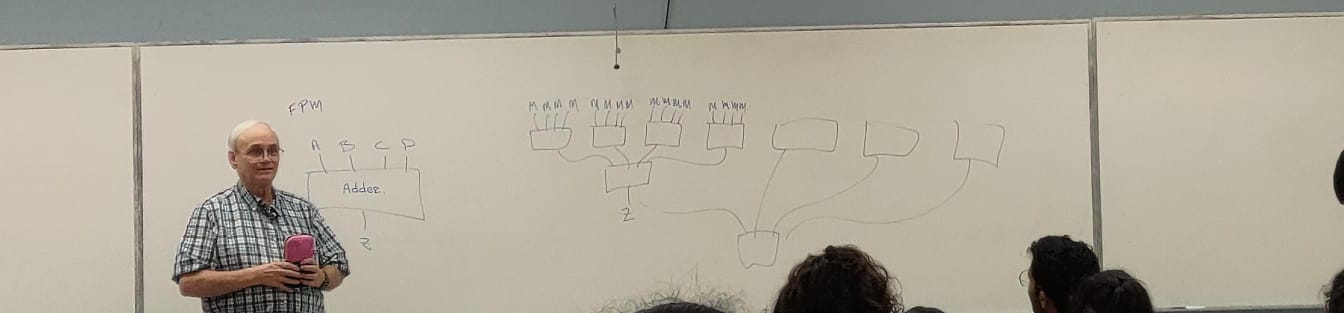 FPM
A B C D
Adder
Z
M M M M M M M M M M M M M M M M
Z